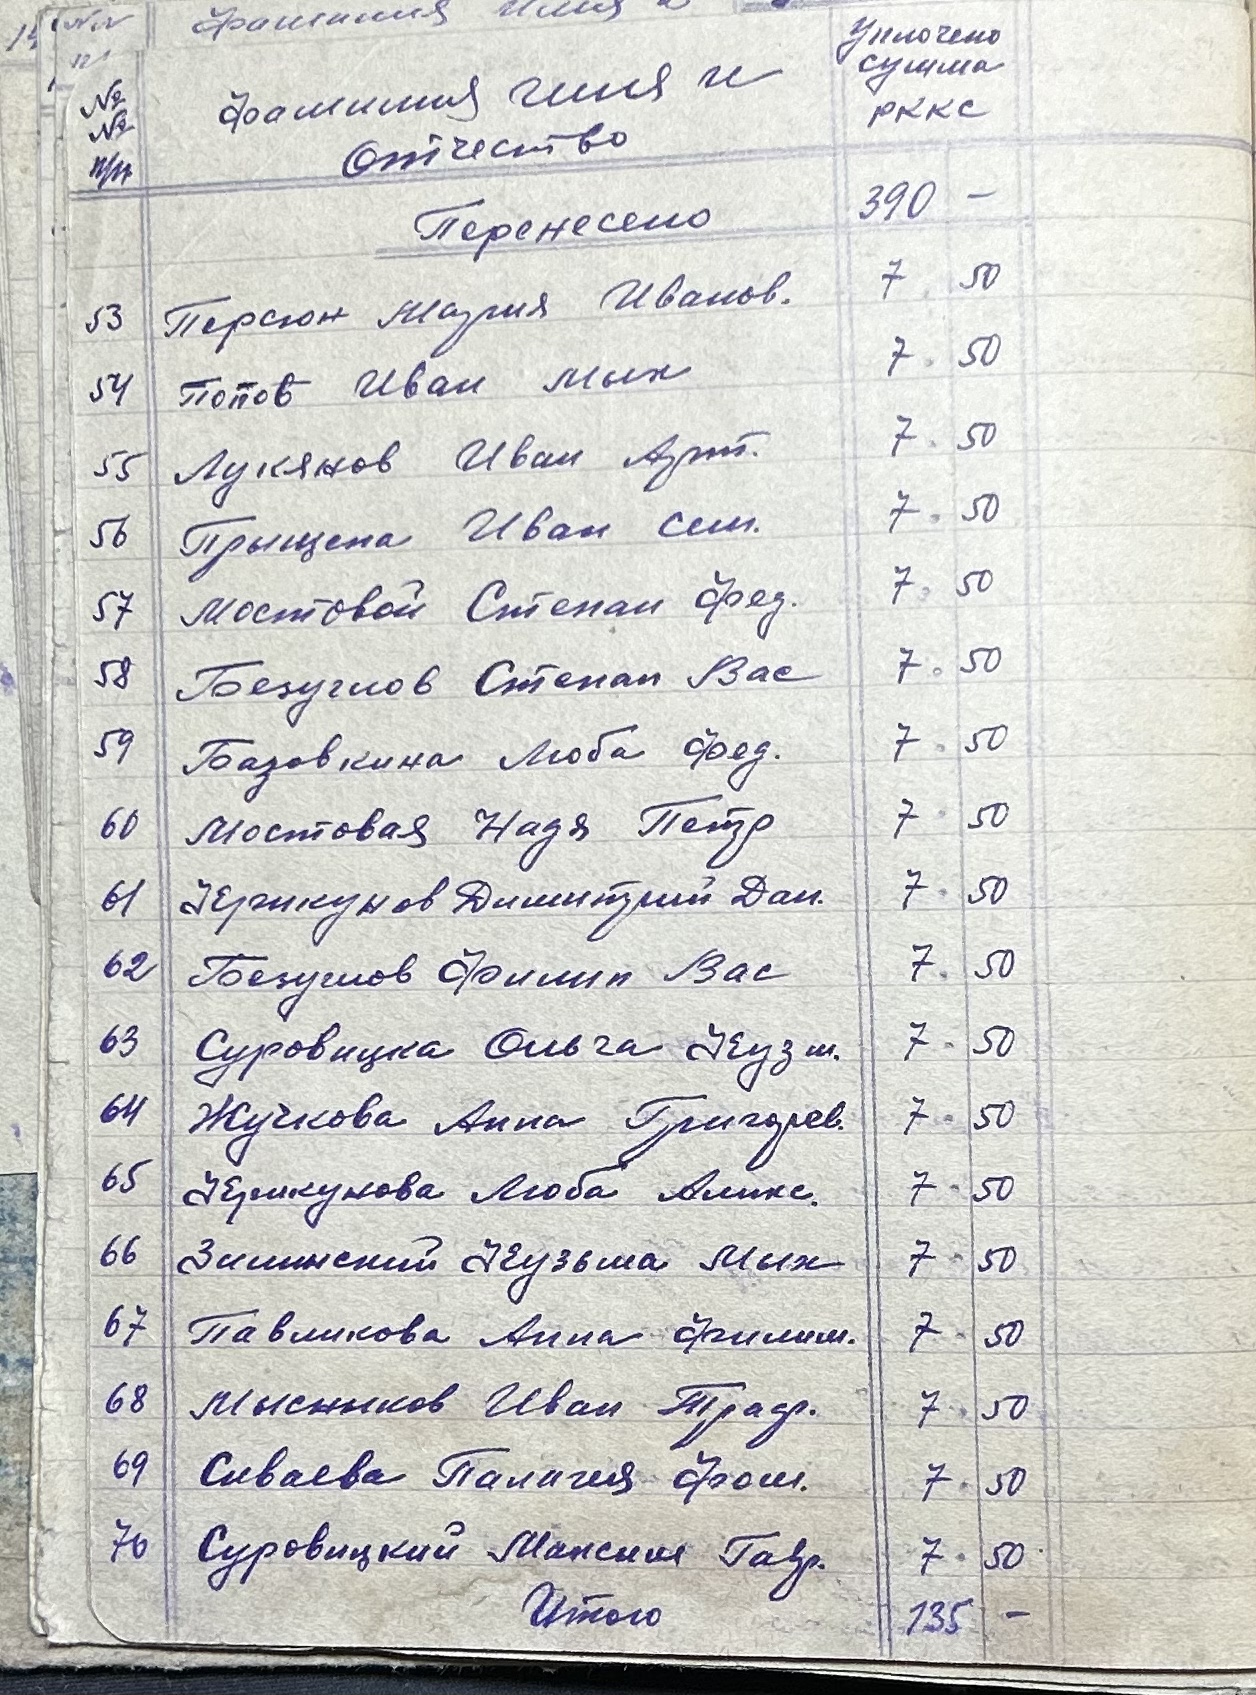 Фамилия Имя
№ № п/п Фамилия имя и Отчество Уплочено сумма РККС
Перенесено 390 -
53 Персюн Мария Иванов. 7. 50
54 Попов Иван Мих 7. 50
55 Лукянов Иван Арт. 7. 50
56 Прыщепа Иван Сем. 7. 50
57 Мостовой Степан Фед. 7. 50
58 Безуглов Степан Вас 7. 50
59 Базовкина Люба Фед. 7. 50
60 Мостовая Надя Петр 7. 50
61 Крикунов Димитрий Дан. 7. 50
62 Безуглов Филип Вас 7. 50
63 Суровицка Ольга Кузм. 7. 50
64 Жучкова Анна Григорев. 7. 50
65 Крикунова Люба Алекс. 7. 50
66 Зилинский Кузьма Мих 7. 50
67 Павликова Анна Филим. 7. 50
68 Мысников Иван 7. 50
69 Сиваева Палагия Фом. 7. 50
70 Суровицкий Максим Гавр. 7. 50
Итого 135 -